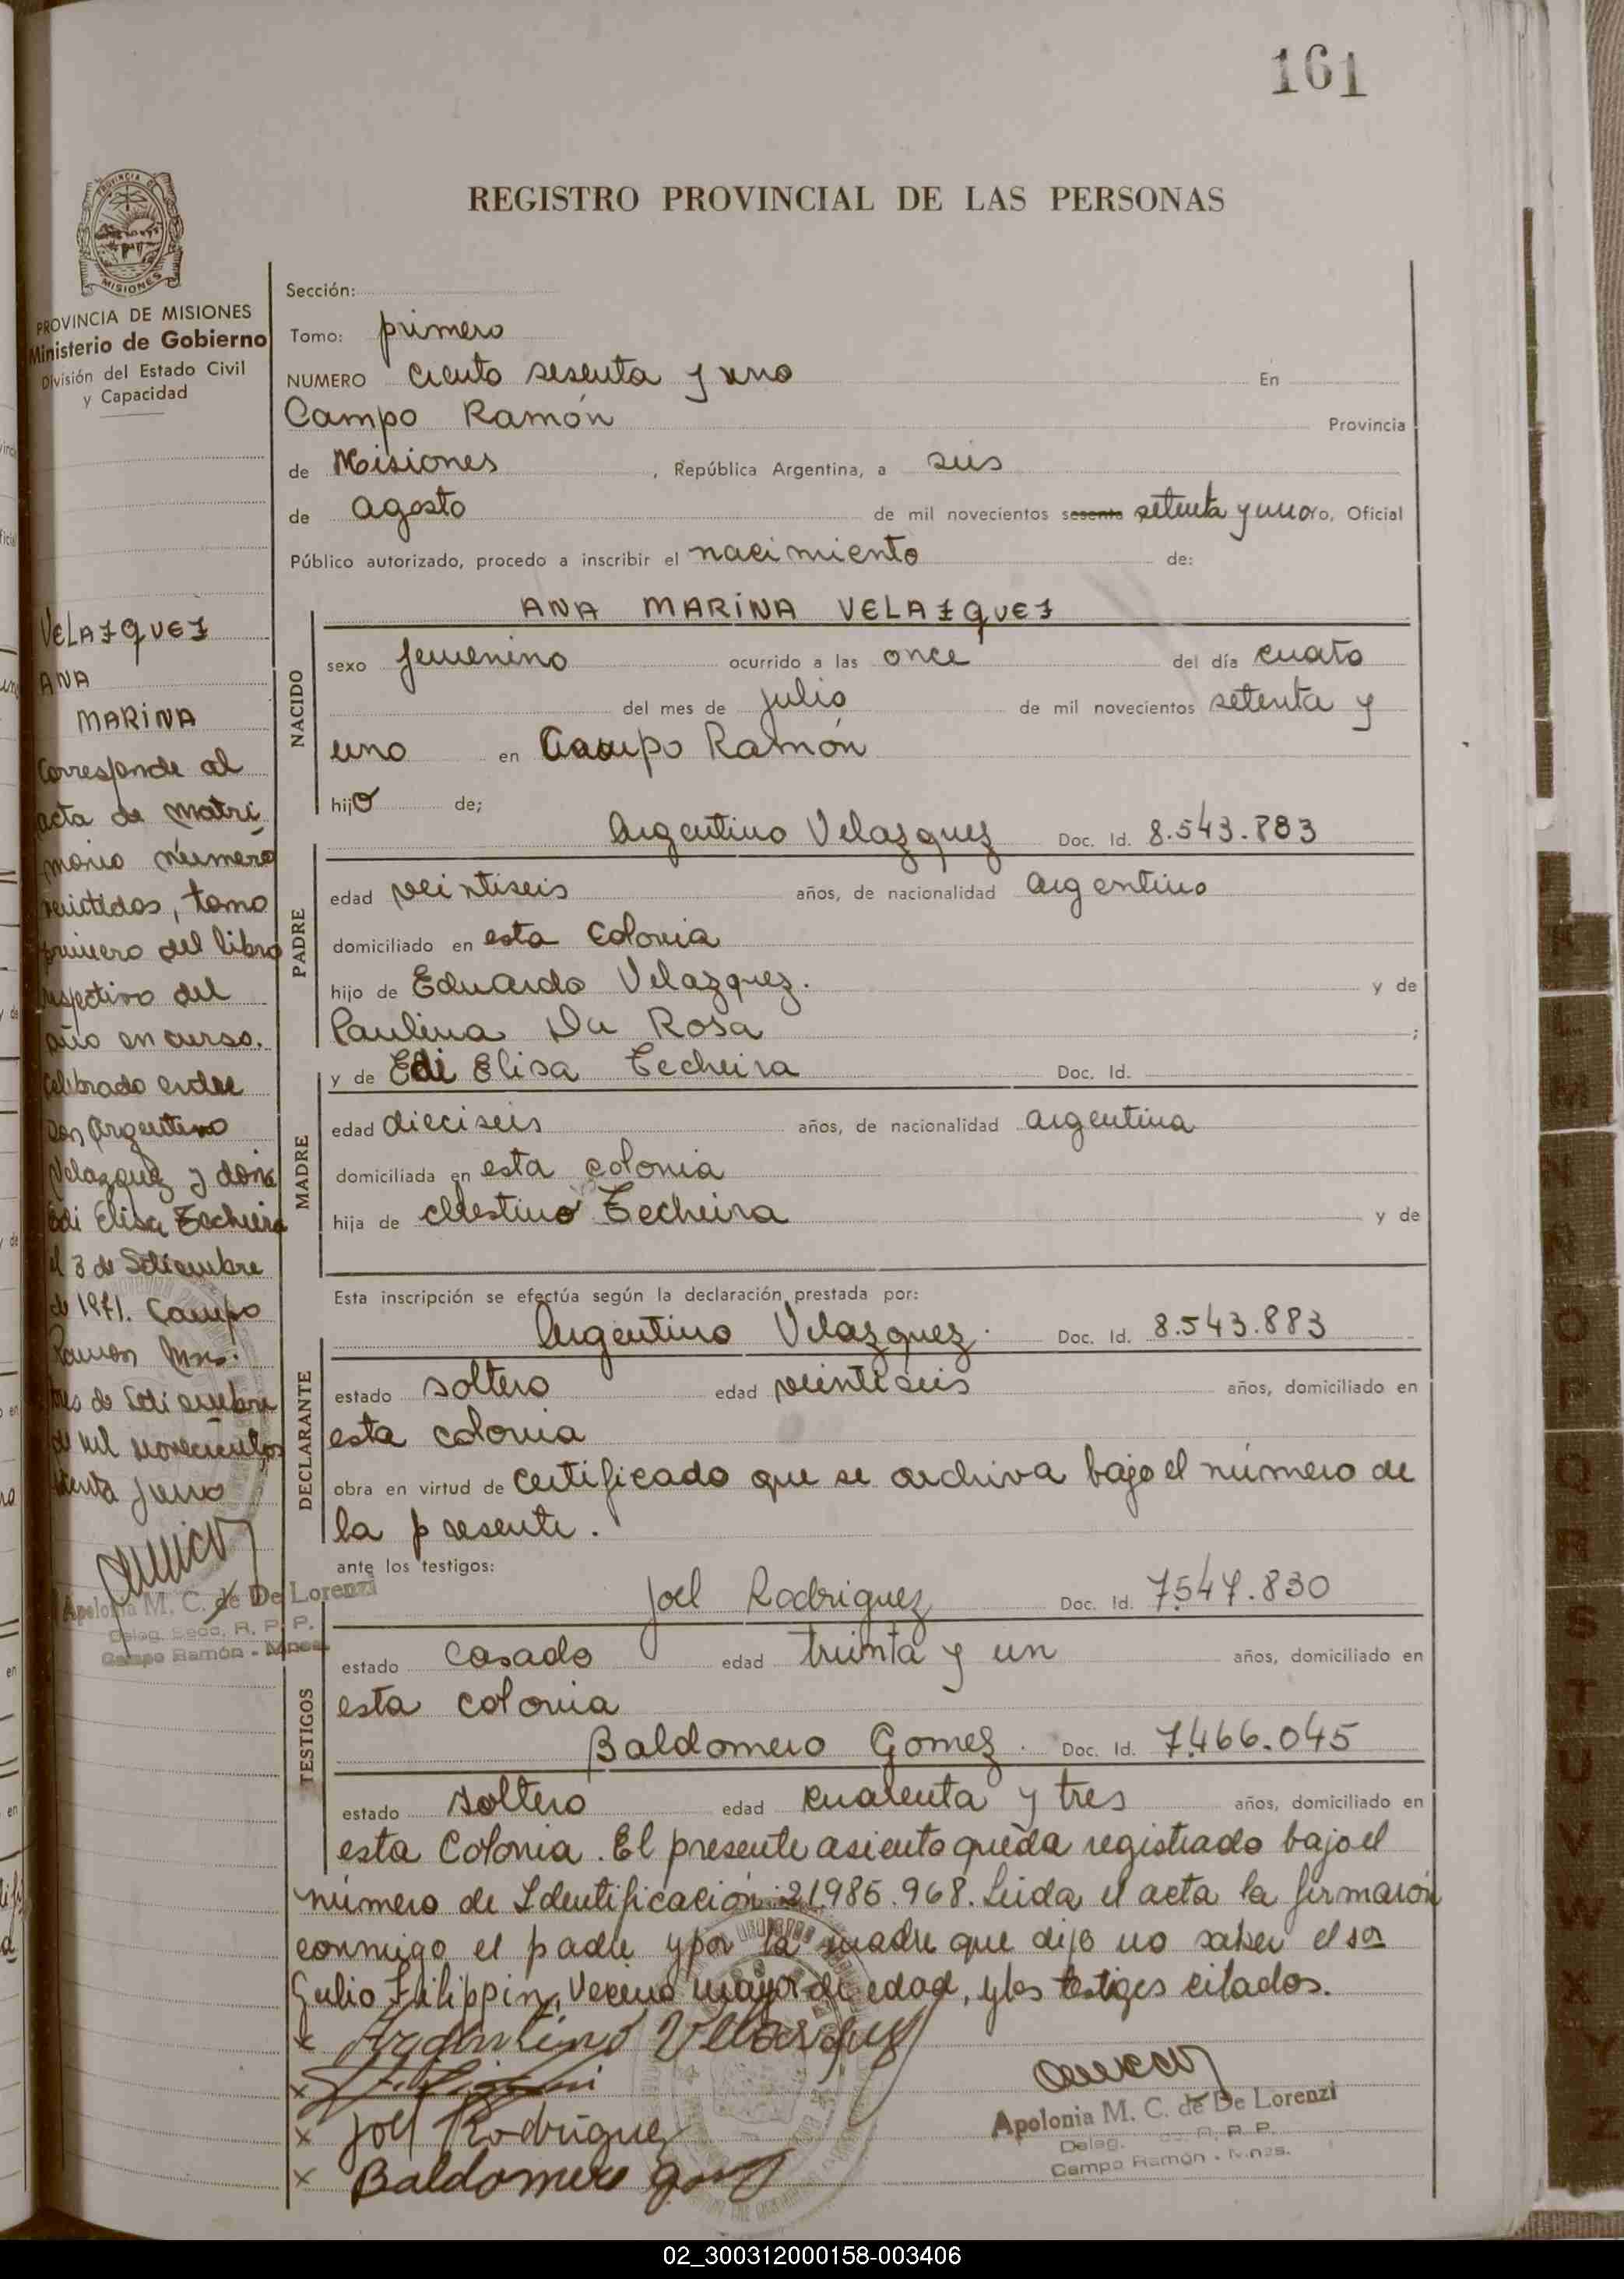 161
REGISTRO PROVINCIAL DE LAS PERSONAS
PROVINCIA DE MISIONES
Ministerio de Gobierno
División del Estado Civil
y Capacidad
VELAZQUEZ
ANA
MARINA
Corresponde al
acta de matri
monio número
veintidos, tomo
primero del libro
respectivo del
año en curso.
Celebrado entre
Don Argentino
Velazquez y doña
Edi Elisa Techeira
el 3 de Setiembre
de 1971. Campo
Ramon Mnes.
tres de Setiembre
de mil novecientos
setenta y uno
Apolonia M. C. de De Lorenzi
Deleg. Secc. R. P. P.
Campo Ramón - Mnes.
Sección:
Tomo: primero
NUMERO ciento sesenta y uno En
Campo Ramón Provincia
de Misiones, República Argentina, a seis
de agosto de mil novecientos sesenta setenta y uno yo, Oficial
Público autorizado, procedo a inscribir el nacimiento de:
NACIDO
ANA MARINA VELAZQUEZ
sexo femenino ocurrido a las once del día cuato
del mes de julio de mil novecientos setenta y
uno en Campo Ramón
hijo de;
PADRE
Argentino Velazquez Doc. Id. 8.543.883
edad veintiseis años, de nacionalidad argentino
domiciliado en esta Colonia
hijo de Eduardo Velazquez. y de
Paulina Da Rosa ;
MADRE
y de Edi Elisa Techeira Doc. Id.
edad dieciseis años, de nacionalidad argentina
domiciliada en esta colonia
hija de Celestino Techeira y de
Esta inscripción se efectúa según la declaración prestada por:
DECLARANTE
Argentino Velazquez. Doc. Id. 8.543.883
estado soltero edad veintiseis años, domiciliado en
esta colonia
obra en virtud de certificado que se archiva bajo el número de
la presente.
ante los testigos:
TESTIGOS
Joel Rodriguez Doc. Id. 7.547.830
estado casado edad treinta y un años, domiciliado en
esta colonia
Baldomero Gomez. Doc. Id. 7.466.045
estado soltero edad cuarenta y tres años, domiciliado en
esta Colonia. El presente asiento queda registrado bajo el
número de Identificación 21.985.968. Leida el acta la firmaron
conmigo el padre y por la madre que dijo no saber el sor
Julio Filippin, Vecino mayor de edad, y los testigos citados.
x Argentino Velasquez
x
x Joel Rodriguez
x Baldomero
Apolonia M. C. de De Lorenzi
Deleg. R. P. P.
Campo Ramón - Mnes.
02_300312000158-003406